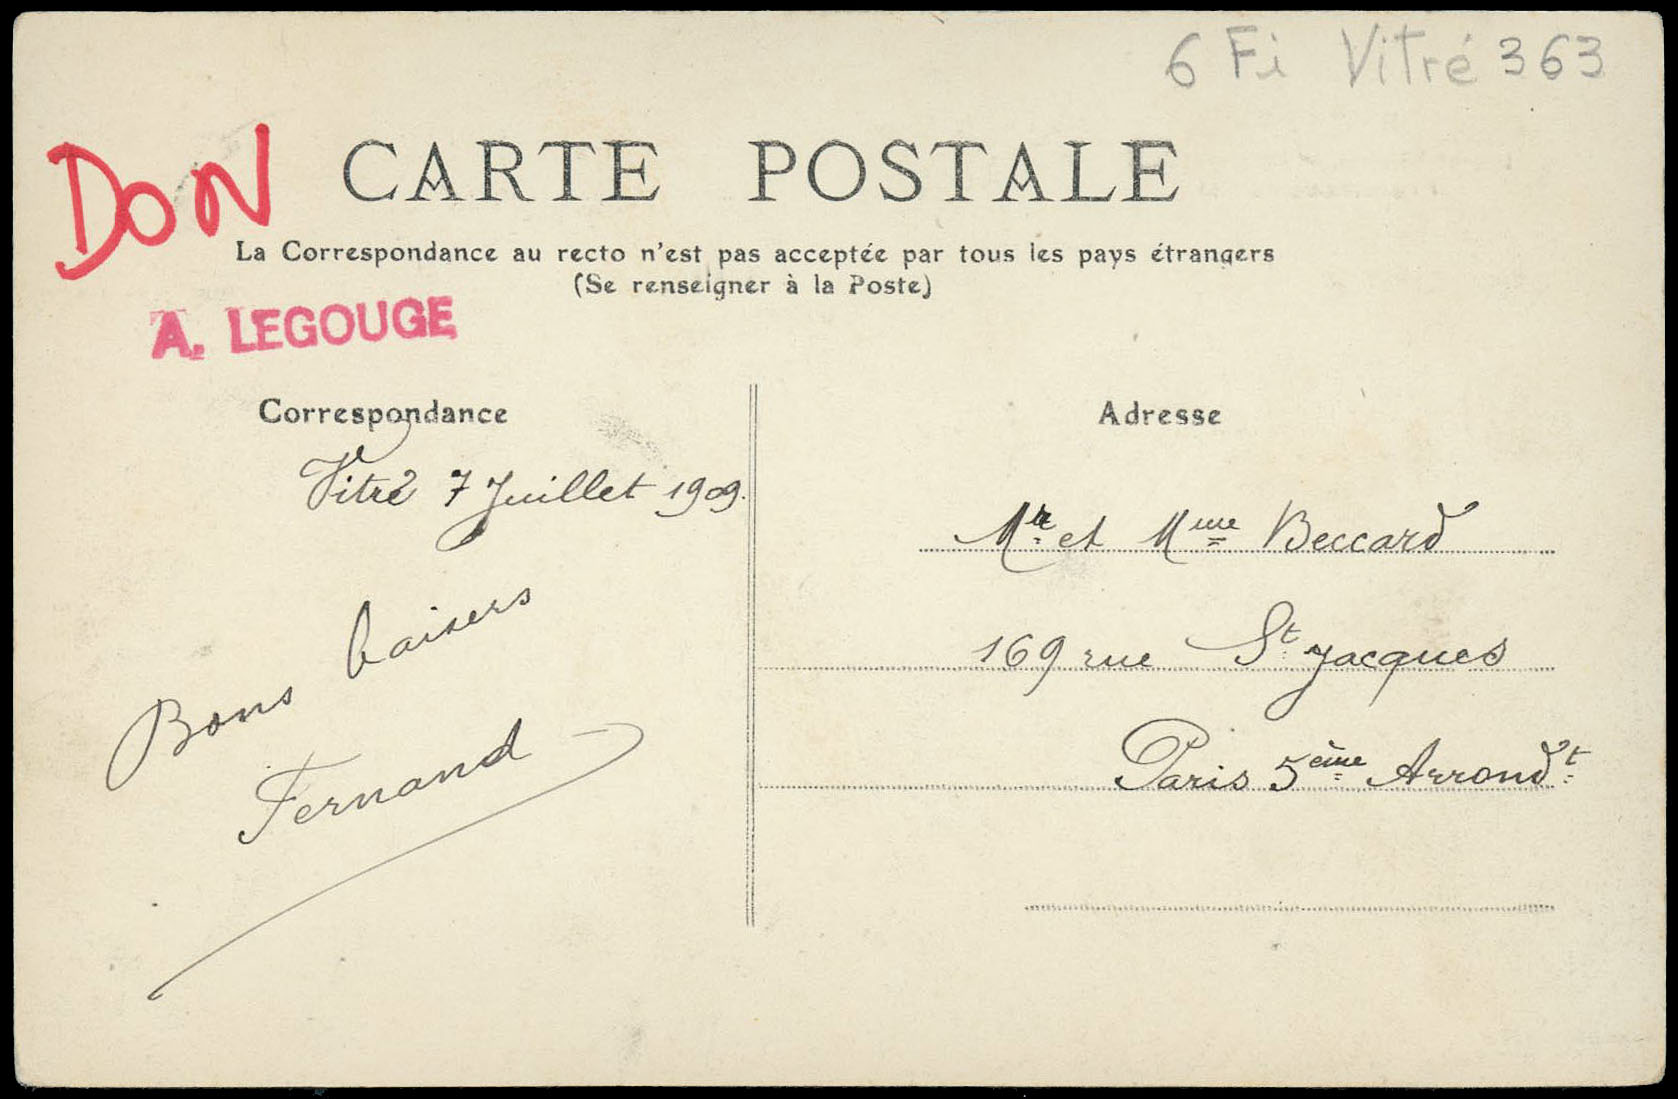 6 Fi Vitré 363
DON
CARTE POSTALE
La Correspondance au recto n'est pas acceptée par tous les pays étrangers
(Se renseigner à la Poste)
A. LEGOUGE
Correspondance
Vitré 7 Juillet 1909.
Bons baisers
Fernand
Adresse
Mr et Mme Beccard
169 rue St Jacques
Paris 5ème Arrondt